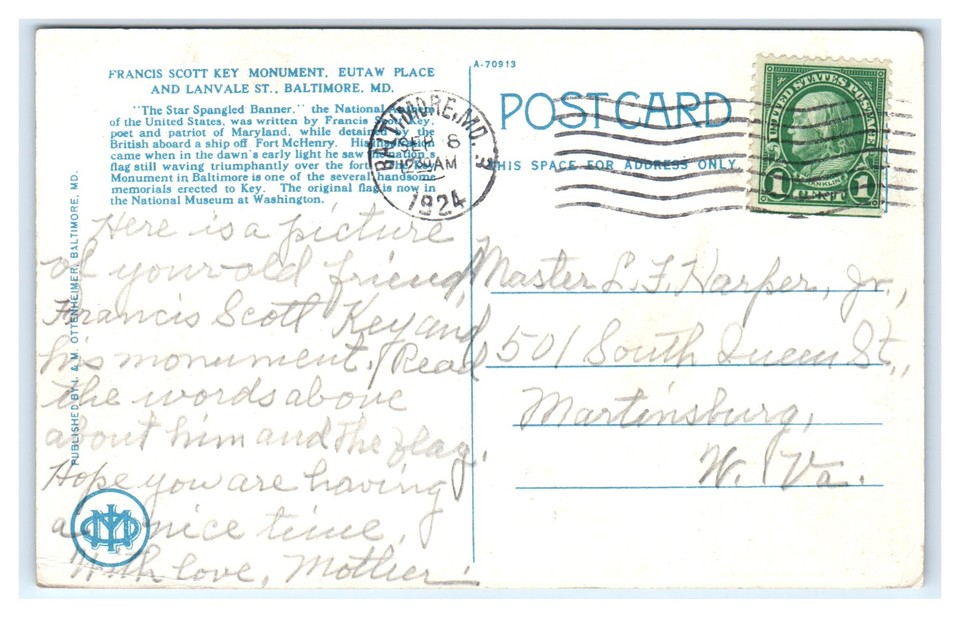 FRANCIS SCOTT KEY MONUMENT, EUTAW PLACE
AND LANVALE ST., BALTIMORE, MD.
"The Star Spangled Banner," the National
of the United States, was written by Francis Scott Key,
poet and patriot of Maryland, while detained by the
British aboard a ship off Fort McHenry. His inspiration
came when in the dawn's early light he saw the nation's
flag still waving triumphantly over the fort. The Key
Monument in Baltimore is one of the several handsome
memorials erected to Key. The original flag is now in
the National Museum at Washington.
PUBLISHED BY I. & M. OTTENHEIMER, BALTIMORE, MD.
Here is a picture
of your old friend,
Francis Scott Key and
his monument. Read
the words above
about him and the flag.
Hope you are having
a nice time.
With love, Mother
A-70913
POSTCARD
THIS SPACE FOR ADDRESS ONLY
BALTIMORE, MD.
SEP 8
AM
1924
UNITED STATES POSTAGE
FRANKLIN
1 CENT 1
Master L. F. Harper, Jr.,
501 South Queen St.,
Martinsburg,
W. Va.